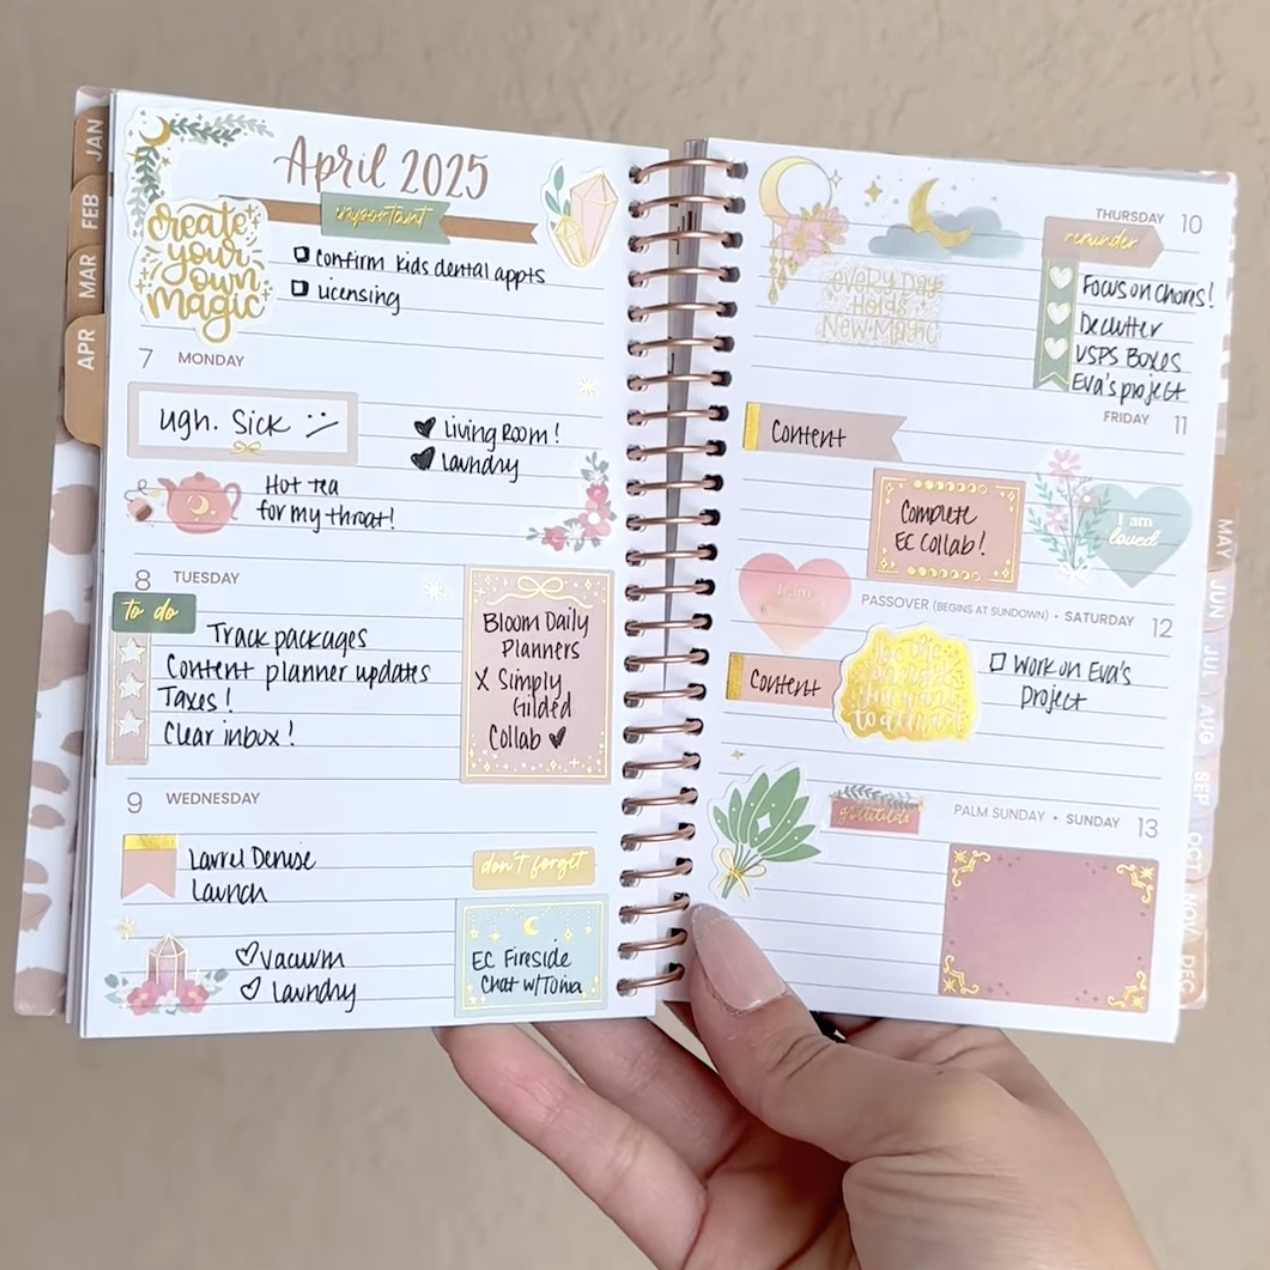 JAN
FEB
MAR
APR
create
your
own
magic
April 2025
important
Confirm kids dental appts
Licensing
7 MONDAY
Ugh. Sick
Living Room!
Laundry
Hot tea
for my throat!
8 TUESDAY
to do
Track packages
Content planner updates
Taxes!
Clear inbox!
Bloom Daily
Planners
X Simply
Gilded
Collab
9 WEDNESDAY
Laurel Denise
Launch
don't forget
Vacuum
Laundry
EC Fireside
Chat w/Tonia
THURSDAY 10
every Day
Holds
New Magic
reminder
Focus on Chores!
Declutter
USPS Boxes
Eva's project
FRIDAY 11
Content
Complete
EC Collab!
I am
loved
I am
PASSOVER (BEGINS AT SUNDOWN) • SATURDAY 12
Content
be the
you want
to attract
Work on Eva's
Project
gratitude
PALM SUNDAY • SUNDAY 13
MAY
JUN
JUL
AUG
SEP
OCT
NOV
DEC